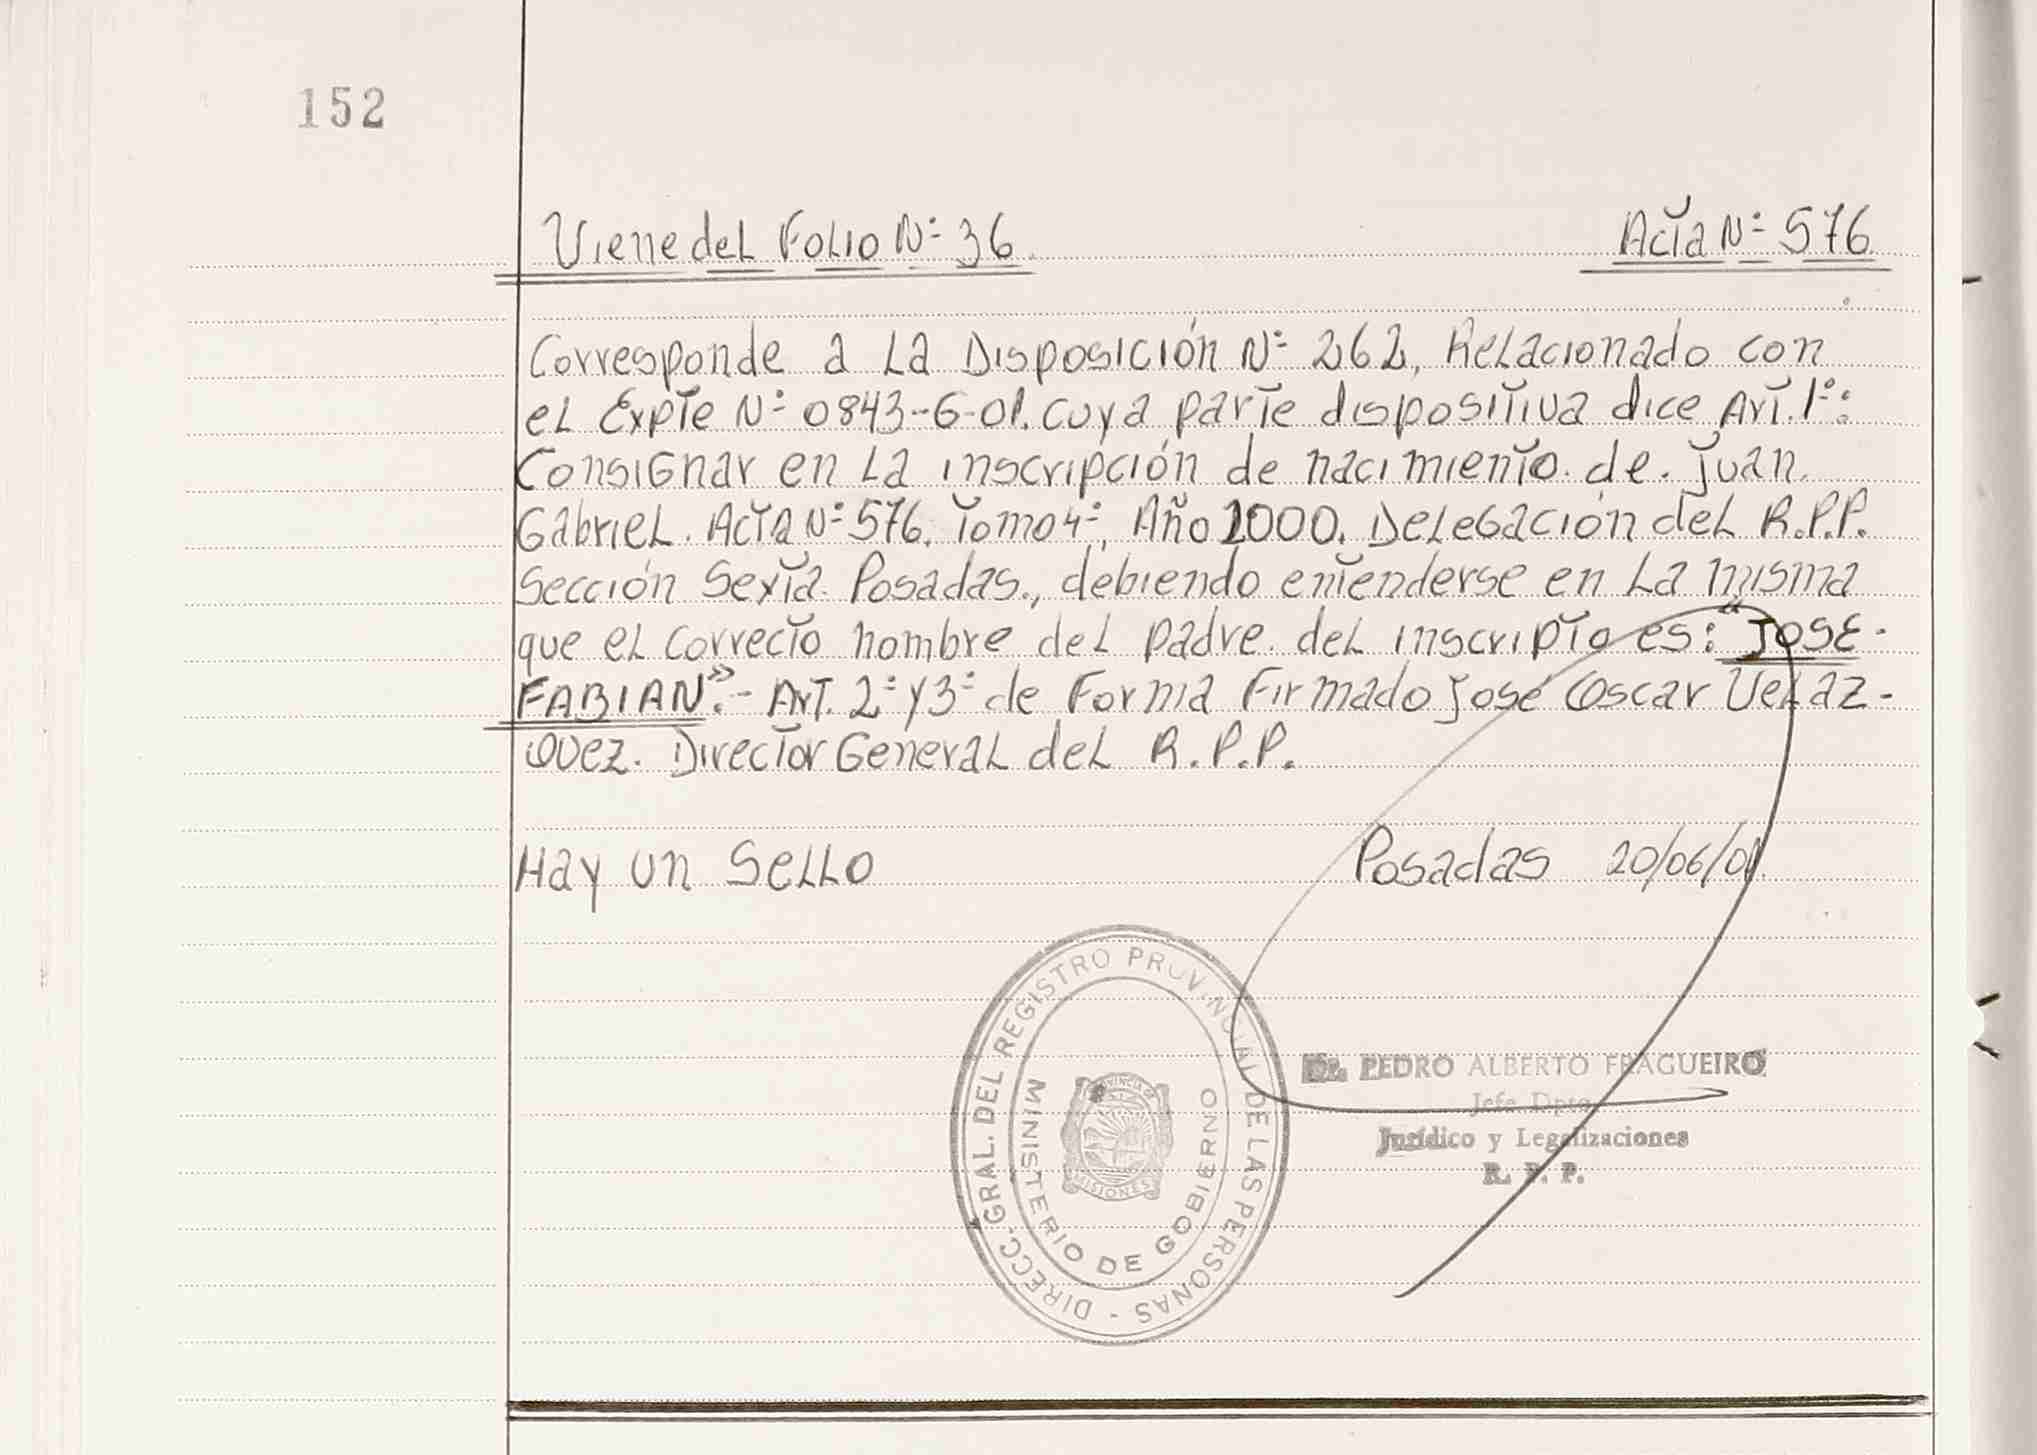 152
Viene del Folio Nº 36.
Acta Nº 576
Corresponde a la Disposición Nº 262, Relacionado con
el Expte Nº 0843-6-01. cuya parte dispositiva dice Art. 1º:
Consignar en la inscripción de nacimiento. de. Juan.
Gabriel. Acta Nº 576. Tomo 4º, Año 2000. Delegación del R.P.P.
Sección Sexta. Posadas., debiendo entenderse en la misma
que el correcto nombre del padre. del inscripto es: "JOSE-
FABIAN".- Art. 2º y 3º de Forma Firmado José Oscar Velaz-
quez. Director General del R.P.P.
Hay un Sello
Posadas 20/06/01.
DIRECC. GRAL. DEL REGISTRO PROVINCIAL DE LAS PERSONAS -
MINISTERIO DE GOBIERNO
PROVINCIA DE
MISIONES
Dr. PEDRO ALBERTO FRAGUEIRO
Jefe Dpto.
Jurídico y Legalizaciones
R. P. P.